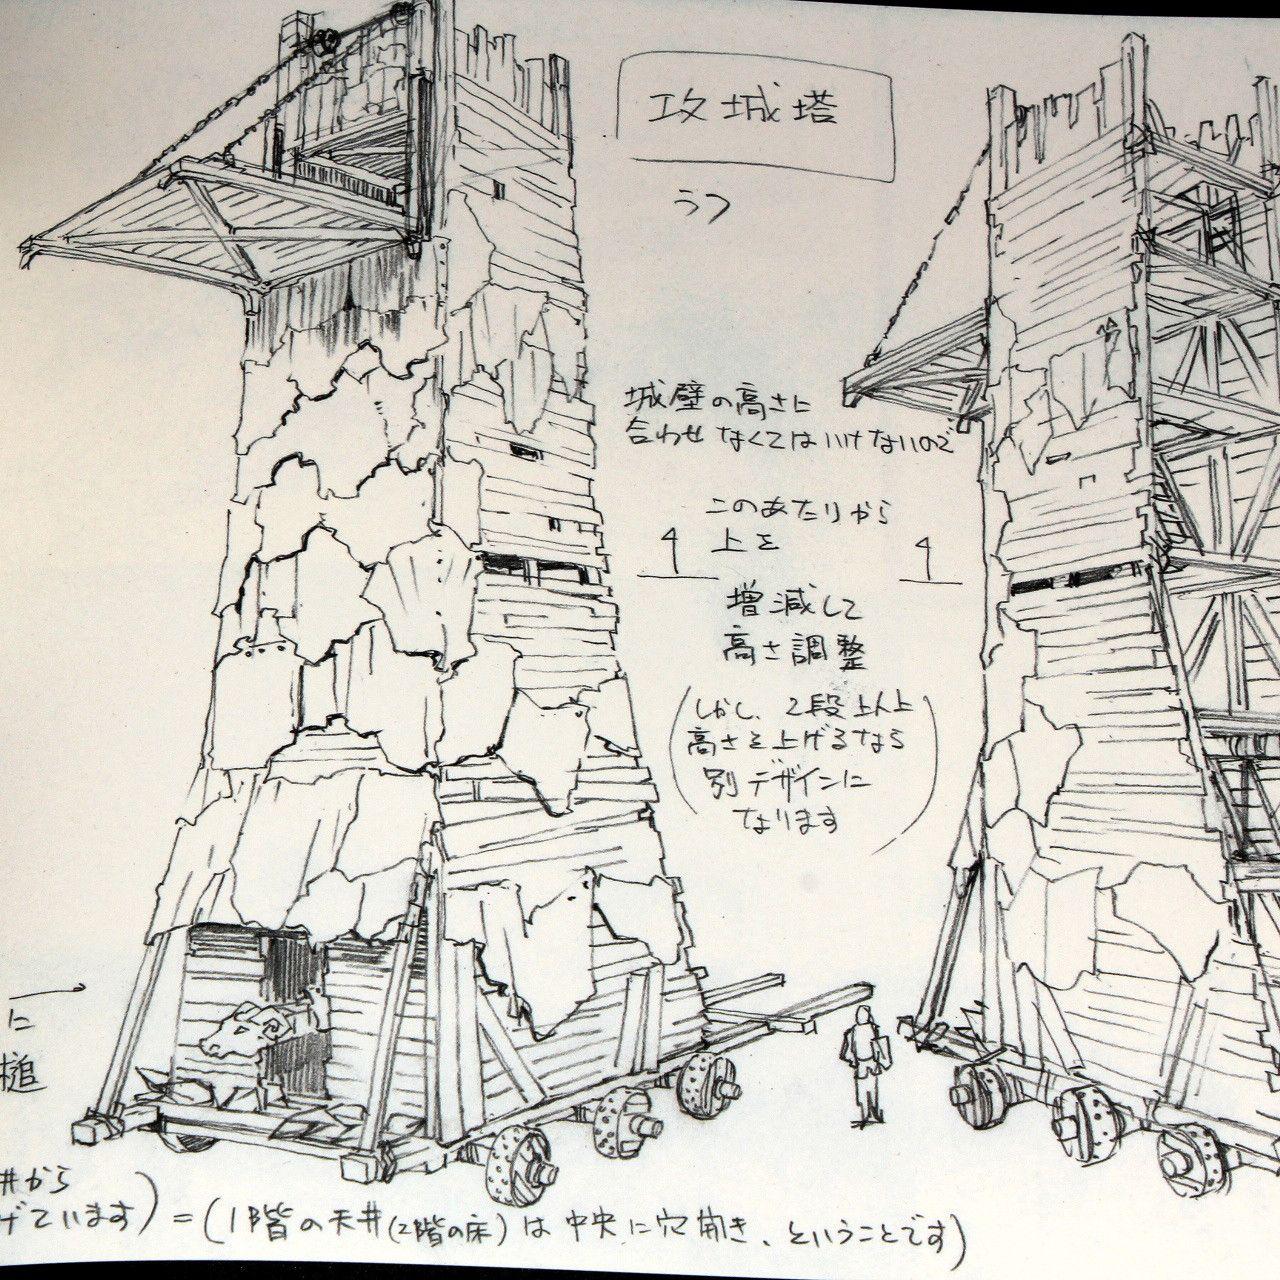 攻城塔
城壁の高さに
合わせなくてはいけないので
このあたりから
上を
増減して
高さ調整
(しかし、2段以上
高さを上げるなら
別デザインに
なります)
に
槌
井から
げています)=(1階の天井(2階の床)は中央に穴開き、ということです)